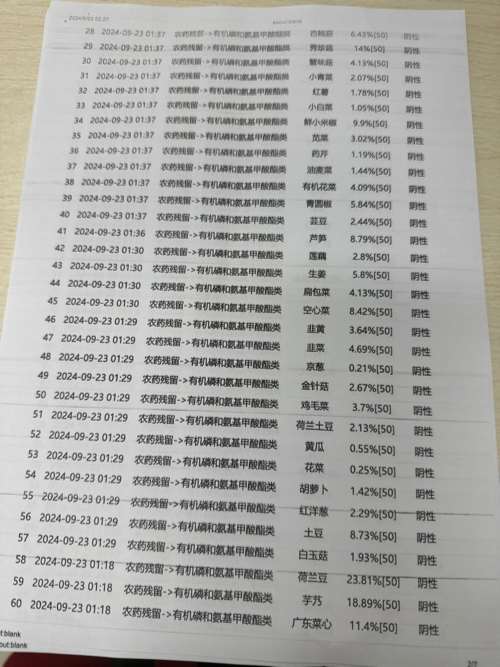 28 2024-09-23 01:37 农药残留->有机磷和氨基甲酸酯类 杏鲍菇 6.43%[50] 阴性
29 2024-09-23 01:37 农药残留->有机磷和氨基甲酸酯类 秀珍菇 14%[50] 阴性
30 2024-09-23 01:37 农药残留->有机磷和氨基甲酸酯类 蟹味菇 4.13%[50] 阴性
31 2024-09-23 01:37 农药残留->有机磷和氨基甲酸酯类 小青菜 2.07%[50] 阴性
32 2024-09-23 01:37 农药残留->有机磷和氨基甲酸酯类 红薯 1.78%[50] 阴性
33 2024-09-23 01:37 农药残留->有机磷和氨基甲酸酯类 小白菜 1.05%[50] 阴性
34 2024-09-23 01:37 农药残留->有机磷和氨基甲酸酯类 鲜小米椒 9.9%[50] 阴性
35 2024-09-23 01:37 农药残留->有机磷和氨基甲酸酯类 苋菜 3.02%[50] 阴性
36 2024-09-23 01:37 农药残留->有机磷和氨基甲酸酯类 药芹 1.19%[50] 阴性
37 2024-09-23 01:37 农药残留->有机磷和氨基甲酸酯类 油麦菜 1.44%[50] 阴性
38 2024-09-23 01:37 农药残留->有机磷和氨基甲酸酯类 有机花菜 4.09%[50] 阴性
39 2024-09-23 01:37 农药残留->有机磷和氨基甲酸酯类 青圆椒 5.84%[50] 阴性
40 2024-09-23 01:37 农药残留->有机磷和氨基甲酸酯类 芸豆 2.44%[50] 阴性
41 2024-09-23 01:36 农药残留->有机磷和氨基甲酸酯类 芦笋 8.79%[50] 阴性
42 2024-09-23 01:30 农药残留->有机磷和氨基甲酸酯类 莲藕 2.8%[50] 阴性
43 2024-09-23 01:30 农药残留->有机磷和氨基甲酸酯类 生姜 5.8%[50] 阴性
44 2024-09-23 01:30 农药残留->有机磷和氨基甲酸酯类 扁包菜 4.13%[50] 阴性
45 2024-09-23 01:30 农药残留->有机磷和氨基甲酸酯类 空心菜 8.42%[50] 阴性
46 2024-09-23 01:29 农药残留->有机磷和氨基甲酸酯类 韭黄 3.64%[50] 阴性
47 2024-09-23 01:29 农药残留->有机磷和氨基甲酸酯类 韭菜 4.69%[50] 阴性
48 2024-09-23 01:29 农药残留->有机磷和氨基甲酸酯类 京葱 0.21%[50] 阴性
49 2024-09-23 01:29 农药残留->有机磷和氨基甲酸酯类 金针菇 2.67%[50] 阴性
50 2024-09-23 01:29 农药残留->有机磷和氨基甲酸酯类 鸡毛菜 3.7%[50] 阴性
51 2024-09-23 01:29 农药残留->有机磷和氨基甲酸酯类 荷兰土豆 2.13%[50] 阴性
52 2024-09-23 01:29 农药残留->有机磷和氨基甲酸酯类 黄瓜 0.55%[50] 阴性
53 2024-09-23 01:29 农药残留->有机磷和氨基甲酸酯类 花菜 0.25%[50] 阴性
54 2024-09-23 01:29 农药残留->有机磷和氨基甲酸酯类 胡萝卜 1.42%[50] 阴性
55 2024-09-23 01:29 农药残留->有机磷和氨基甲酸酯类 红洋葱 2.29%[50] 阴性
56 2024-09-23 01:29 农药残留->有机磷和氨基甲酸酯类 土豆 8.73%[50] 阴性
57 2024-09-23 01:29 农药残留->有机磷和氨基甲酸酯类 白玉菇 1.93%[50] 阴性
58 2024-09-23 01:18 农药残留->有机磷和氨基甲酸酯类 荷兰豆 23.81%[50] 阴性
59 2024-09-23 01:18 农药残留->有机磷和氨基甲酸酯类 芋艿 18.89%[50] 阴性
60 2024-09-23 01:18 农药残留->有机磷和氨基甲酸酯类 广东菜心 11.4%[50] 阴性
t:blank
out:blank
2/2